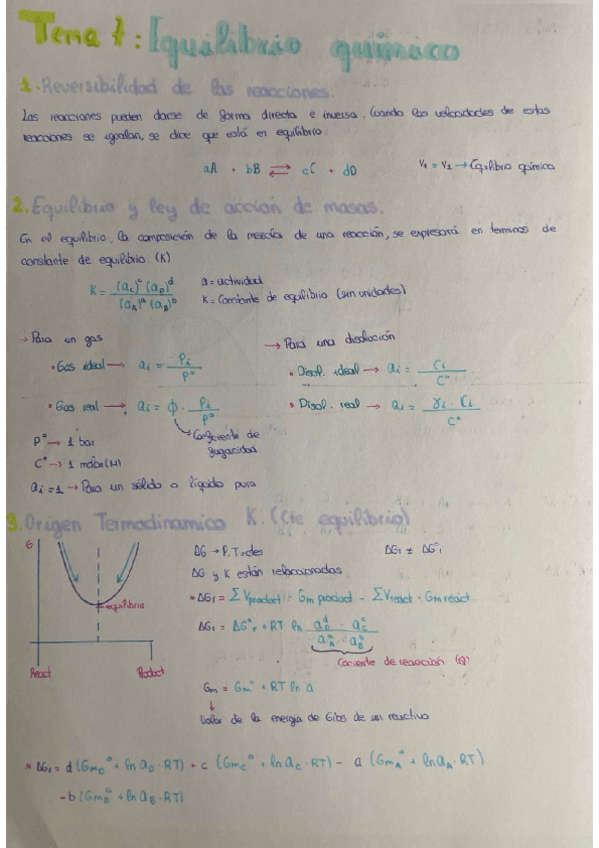 Tema 1: Equilibrio químico
1. Reversibilidad de las reacciones.
Las reacciones pueden darse de forma directa e inversa. Cuando las velocidades de estas
reacciones se igualan, se dice que está en equilibrio.
aA + bB ⇌ cC + dD V₁ = V₂ → Equilibrio químico
2. Equilibrio y ley de acción de masas.
En el equilibrio, la composición de la mezcla de una reacción, se expresará en terminos de
constante de equilibrio. (K)
K = (a_C)^c (a_D)^d / (a_A)^a (a_B)^b
a = actividad
K = Constante de equilibrio (sin unidades)
→ Para un gas
• Gas ideal → a_i = P_i / P°
• Gas real → a_i = ϕ · P_i / P°
Coeficiente de
fugacidad
P° → 1 bar
C° → 1 molar (M)
a_i = 1 → Para un sólido o líquido puro
→ Para una disolución
• Disol. ideal → a_i = C_i / C°
• Disol. real → a_i = γ_i · C_i / C°
3. Origen Termodinamico K. (Cte equilibrio)
G
equilibrio
React Product
ΔG → P, T = ctes ΔG_r ≠ ΔG°_r
ΔG y K están relaccionadas
• ΔG_r = Σ V_product · Gm product - Σ V_react · Gm react
ΔG_r = ΔG°_r + RT ln a_D^d · a_C^c / a_A^a · a_B^b
Cociente de reacción (Q)
Gm = Gm° + RT ln a
Valor de la energia de Gibs de un reactivo
* ΔG_r = d (Gm_D° + ln a_D · RT) + c (Gm_C° + ln a_C · RT) - a (Gm_A° + ln a_A · RT)
- b (Gm_B° + ln a_B · RT)